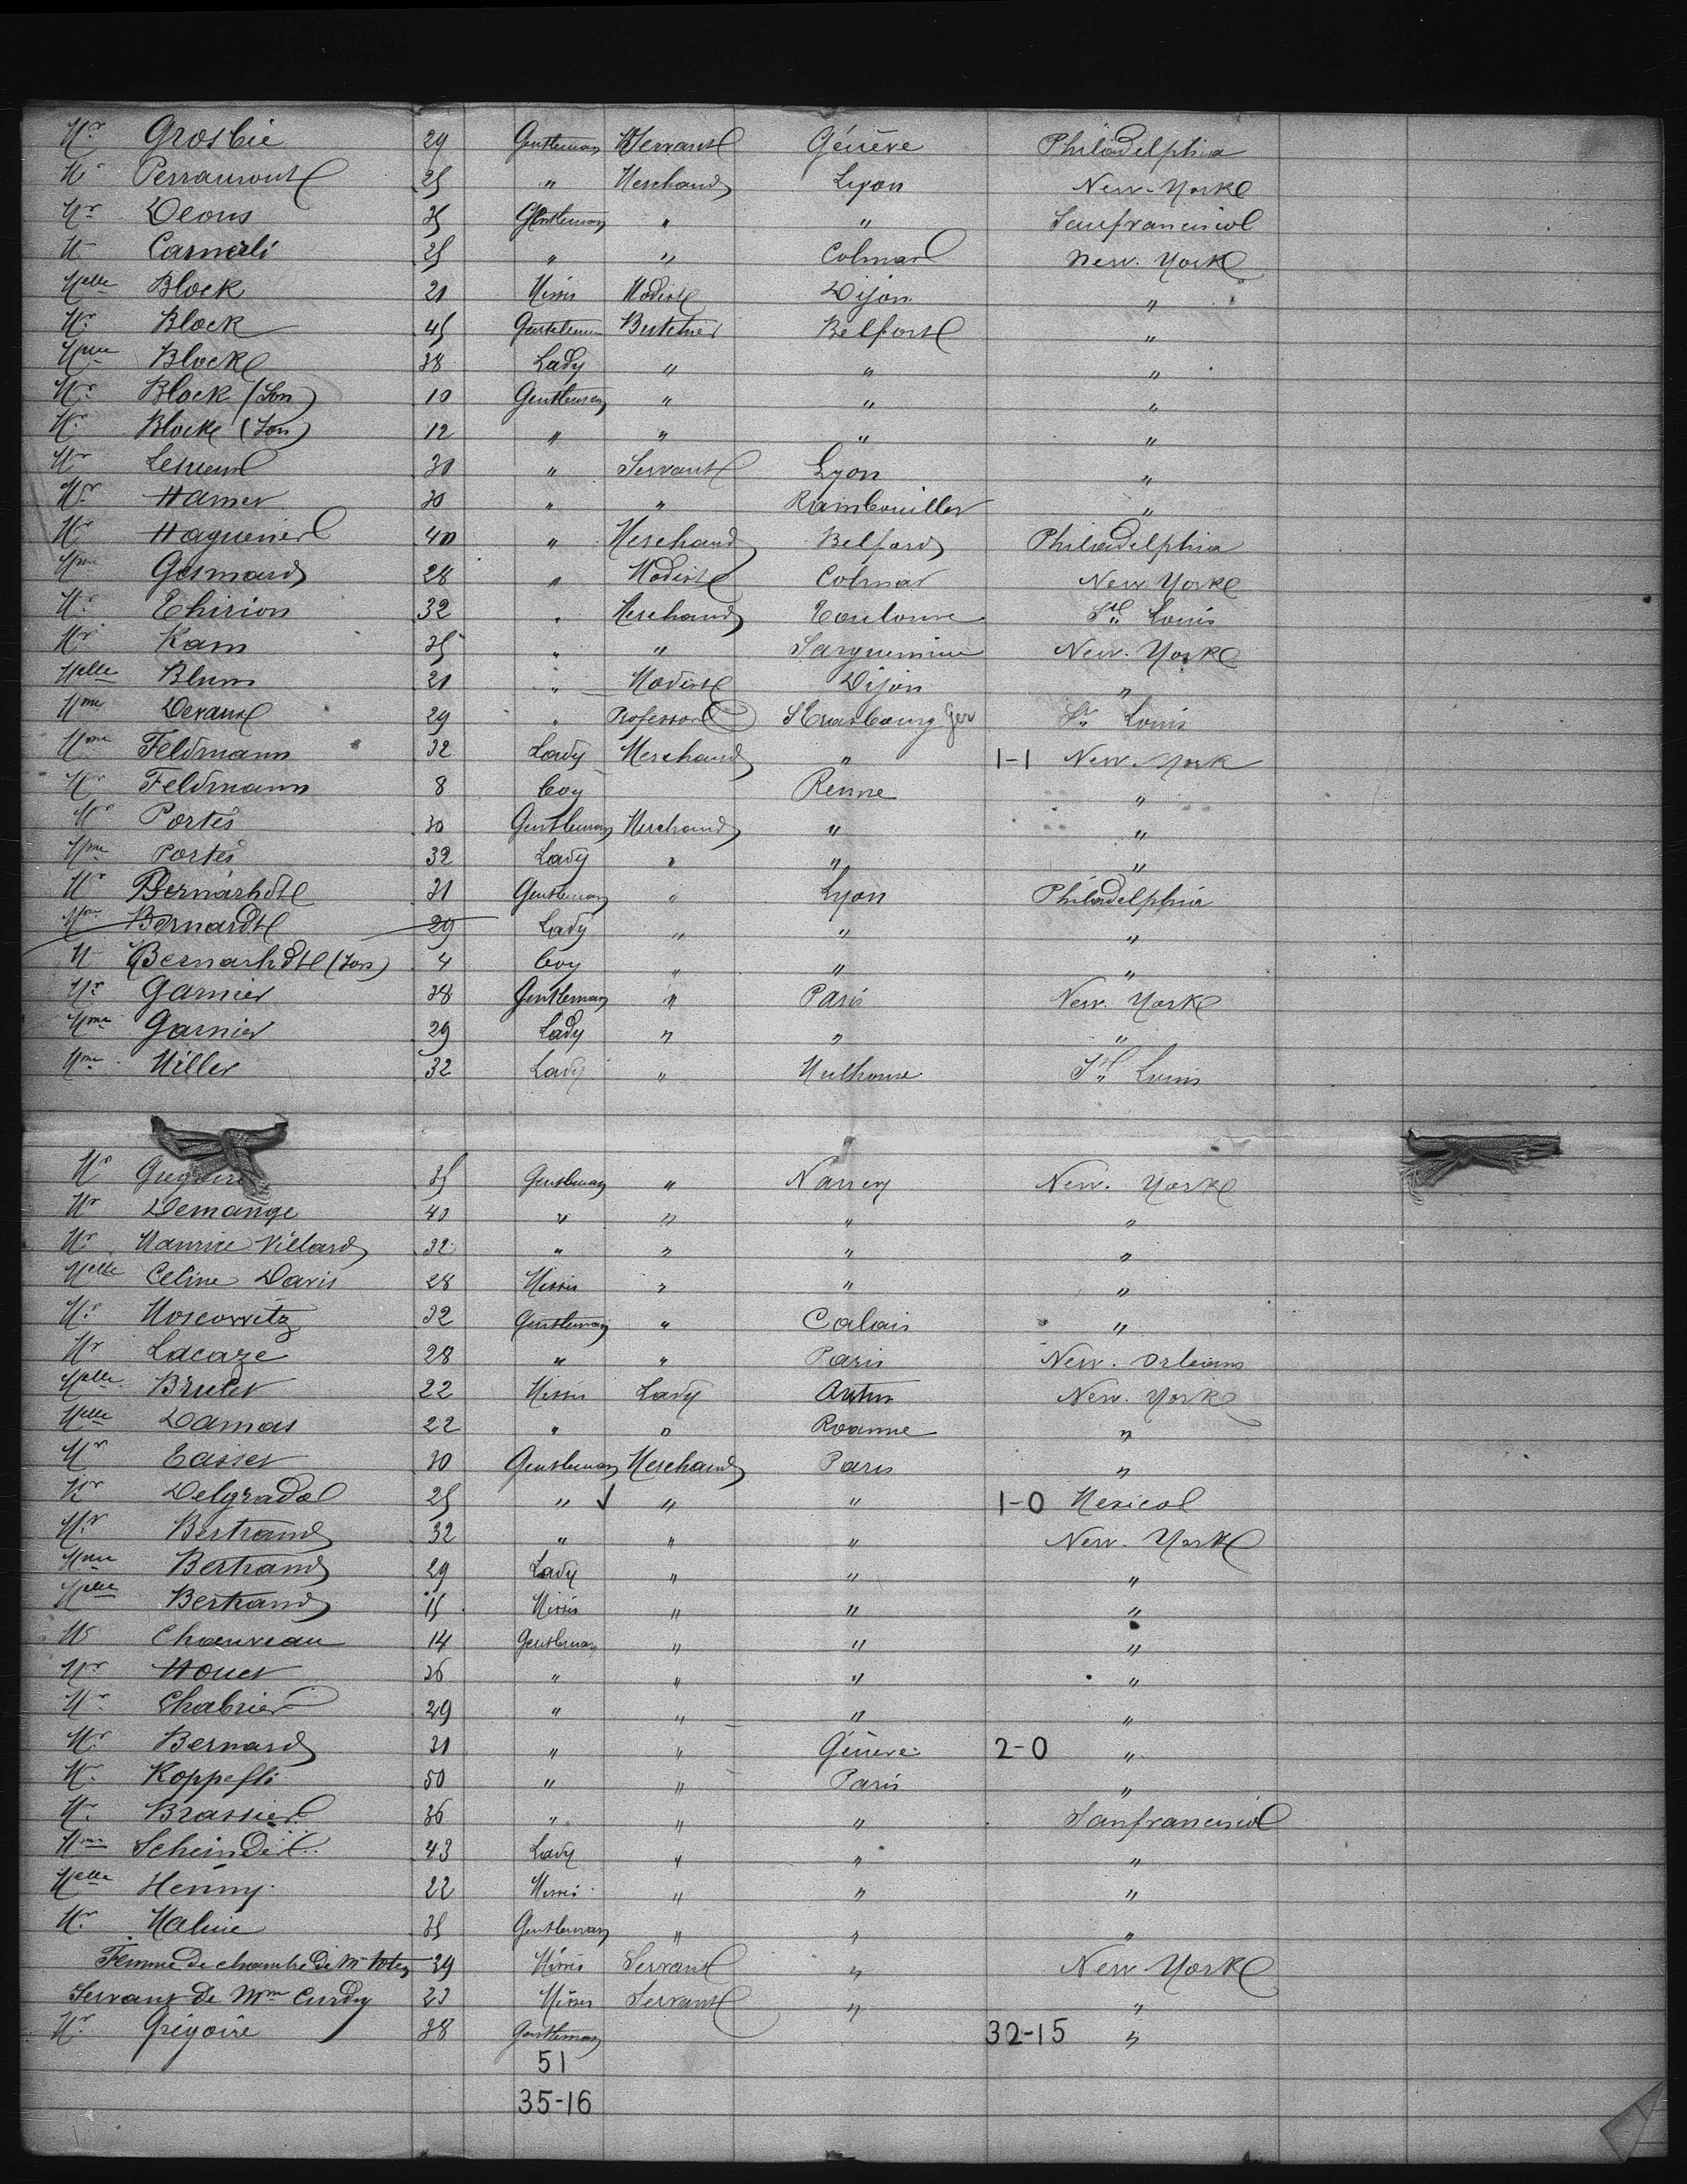 Mr Grosbie 29 Gentleman Servant Génève Philadelphia
Mr Perramont 25 " Merchand Lyon New-York
Mr Deous 35 Gentleman " " Sanfrancisco
Mr Carnerli 25 " " Colmar New. York
Melle Block 21 Missis Modiste Dijon "
Mr Block 45 Gentleman Butcher Belfort "
Mme Block 38 Lady " " "
Mr Block (Son) 10 Gentleman " " "
Mr Block (Son) 12 " " " "
Mr Lesueur 30 " Servant Lyon "
Mr Hamer 30 " " Rambouiller "
Mr Haguenier 40 " Merchand Belford Philadelphia
Mme Gesmard 28 " Modiste Colmar New York
Mr Thirion 32 " Merchand Toulouse St Louis
Mr Kam 35 " " Sarguemine New. York
Melle Blum 21 " Modiste Dijon "
Mme Devaux 29 " Professor Strasbourg Ger St Louis
Mme Feldmann 32 Lady Merchand " 1-1 New. York
Mr Feldmann 8 boy Renne "
Mr Portès 30 Gentleman Merchand " "
Mme Portès 32 Lady " " "
Mr Bernarhdt 31 Gentleman " Lyon Philadelphia
Mme Bernardt 29 Lady " " "
M Bernarhdt (Son) 4 boy " " "
Mr Garnier 38 Gentleman " Paris New. York
Mme Garnier 29 Lady " " "
Mme Miller 32 Lady " Mulhouse St Louis
Mr Gregoire 35 Gentleman " Nancy New. York
Mr Demange 40 " " " "
Mr Maurice Villard 32 " " " "
Melle Celine Davis 28 Missis " " "
Mr Moscowitz 32 Gentleman " Calais "
Mr Lacaze 28 " " Paris New. Orleans
Melle Brulet 22 Missis Lady Autun New. York
Melle Damas 22 " " Roanne "
Mr Tasset 30 Gentleman Merchand Paris "
Mr Delgrado 25 " " " 1-0 Mexico
Mr Bertrand 32 " " " New. York
Mme Bertrand 29 Lady " " "
Melle Bertrand 15 Missis " " "
Mr Chauveau 14 Gentleman " " "
Mr Houet 36 " " " "
Mr Chabrier 29 " " " "
Mr Bernard 31 " " Génève 2-0 "
Mr Koppefli 50 " " Paris "
Mr Brassier 36 " " " Sanfrancisco
Mme Scheindel 43 Lady " " "
Melle Henny 22 Missis " " "
Mr Maline 35 Gentleman " " "
Femme de chambre de Mme 29 Missis Servant " New York
Servant de Mme Curdy 23 Missis Servant " "
Mr Grégoire 38 Gentleman " 32-15 "
51
35-16